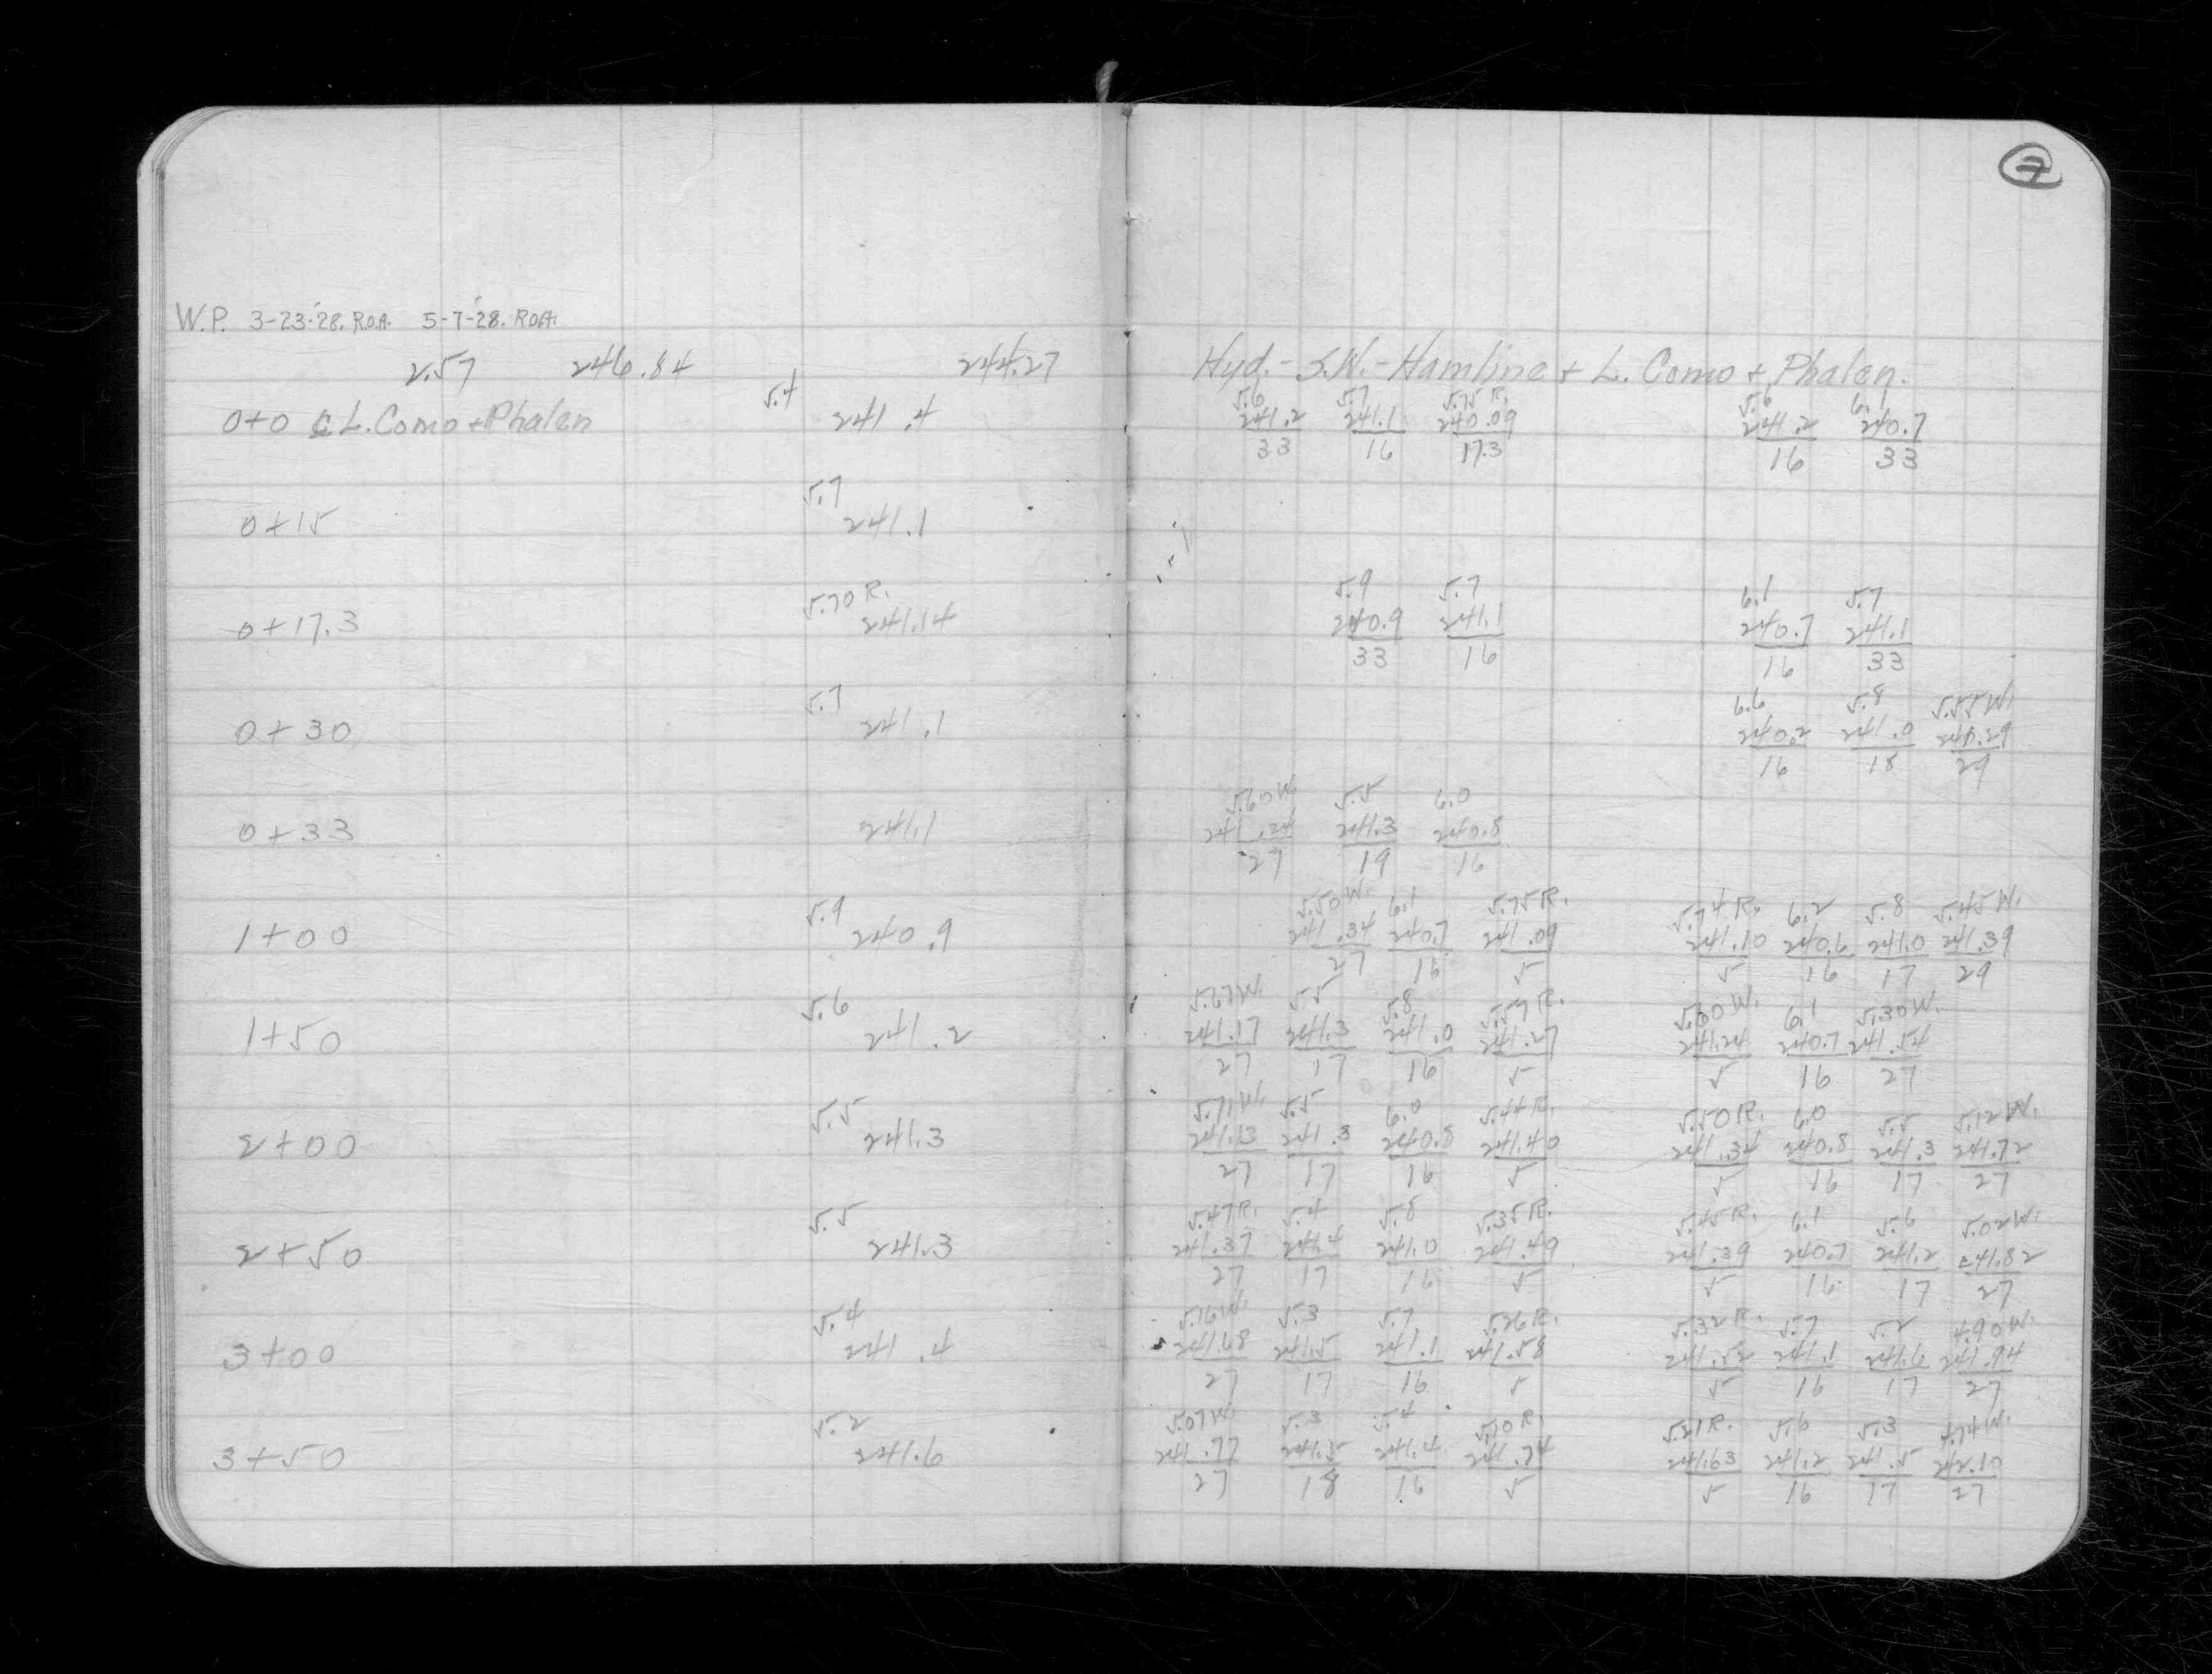 7
W.P. 3-23-'28. R.O.A. 5-7-'28. ROA.
2.57 246.84 244.27 Hyd.-S.W.-Hamline + L. Como + Phalen.
5.4 5.6 5.7 5.75 R. 5.6 6.1
0+0 ℄ L. Como + Phalen 241.4 241.2 241.1 240.09 241.2 240.7
33 16 17.3 16 33
5.7
0+15 241.1
5.70 R. 5.9 5.7 6.1 5.7
0+17.3 241.14 240.9 241.1 240.7 241.1
33 16 16 33
5.7 6.6 5.8 5.55 W.
0+30 241.1 240.2 241.0 241.29
16 18 29
5.60 W. 5.5 6.0
0+33 241.1 241.24 241.3 240.8
27 19 16
5.9 5.50 W. 6.1 5.75 R. 5.74 R. 6.2 5.8 5.45 W.
1+00 240.9 241.34 240.7 241.09 241.10 240.6 241.0 241.39
27 16 5 5 16 17 29
5.6 5.67 W. 5.5 5.8 5.57 R. 5.60 W. 6.1 5.30 W.
1+50 241.2 241.17 241.3 241.0 241.27 241.24 240.7 241.54
27 17 16 5 5 16 27
5.5 5.71 W. 5.5 6.0 5.44 R. 5.50 R. 6.0 5.5 5.12 W.
2+00 241.3 241.13 241.3 240.8 241.40 241.34 240.8 241.3 241.72
27 17 16 5 5 16 17 27
5.5 5.47 R. 5.4 5.8 5.35 R. 5.45 R. 6.1 5.6 5.02 W.
2+50 241.3 241.37 241.4 241.0 241.49 241.39 240.7 241.2 241.82
27 17 16 5 5 16 17 27
5.4 5.16 W. 5.3 5.7 5.26 R. 5.32 R. 5.7 5.2 4.90 W.
3+00 241.4 241.68 241.5 241.1 241.58 241.52 241.1 241.6 241.94
27 17 16 5 5 16 17 27
5.2 5.07 W. 5.3 5.4 5.10 R. 5.21 R. 5.6 5.3 4.74 W.
3+50 241.6 241.77 241.5 241.4 241.74 241.63 241.2 241.5 242.10
27 18 16 5 5 16 17 27